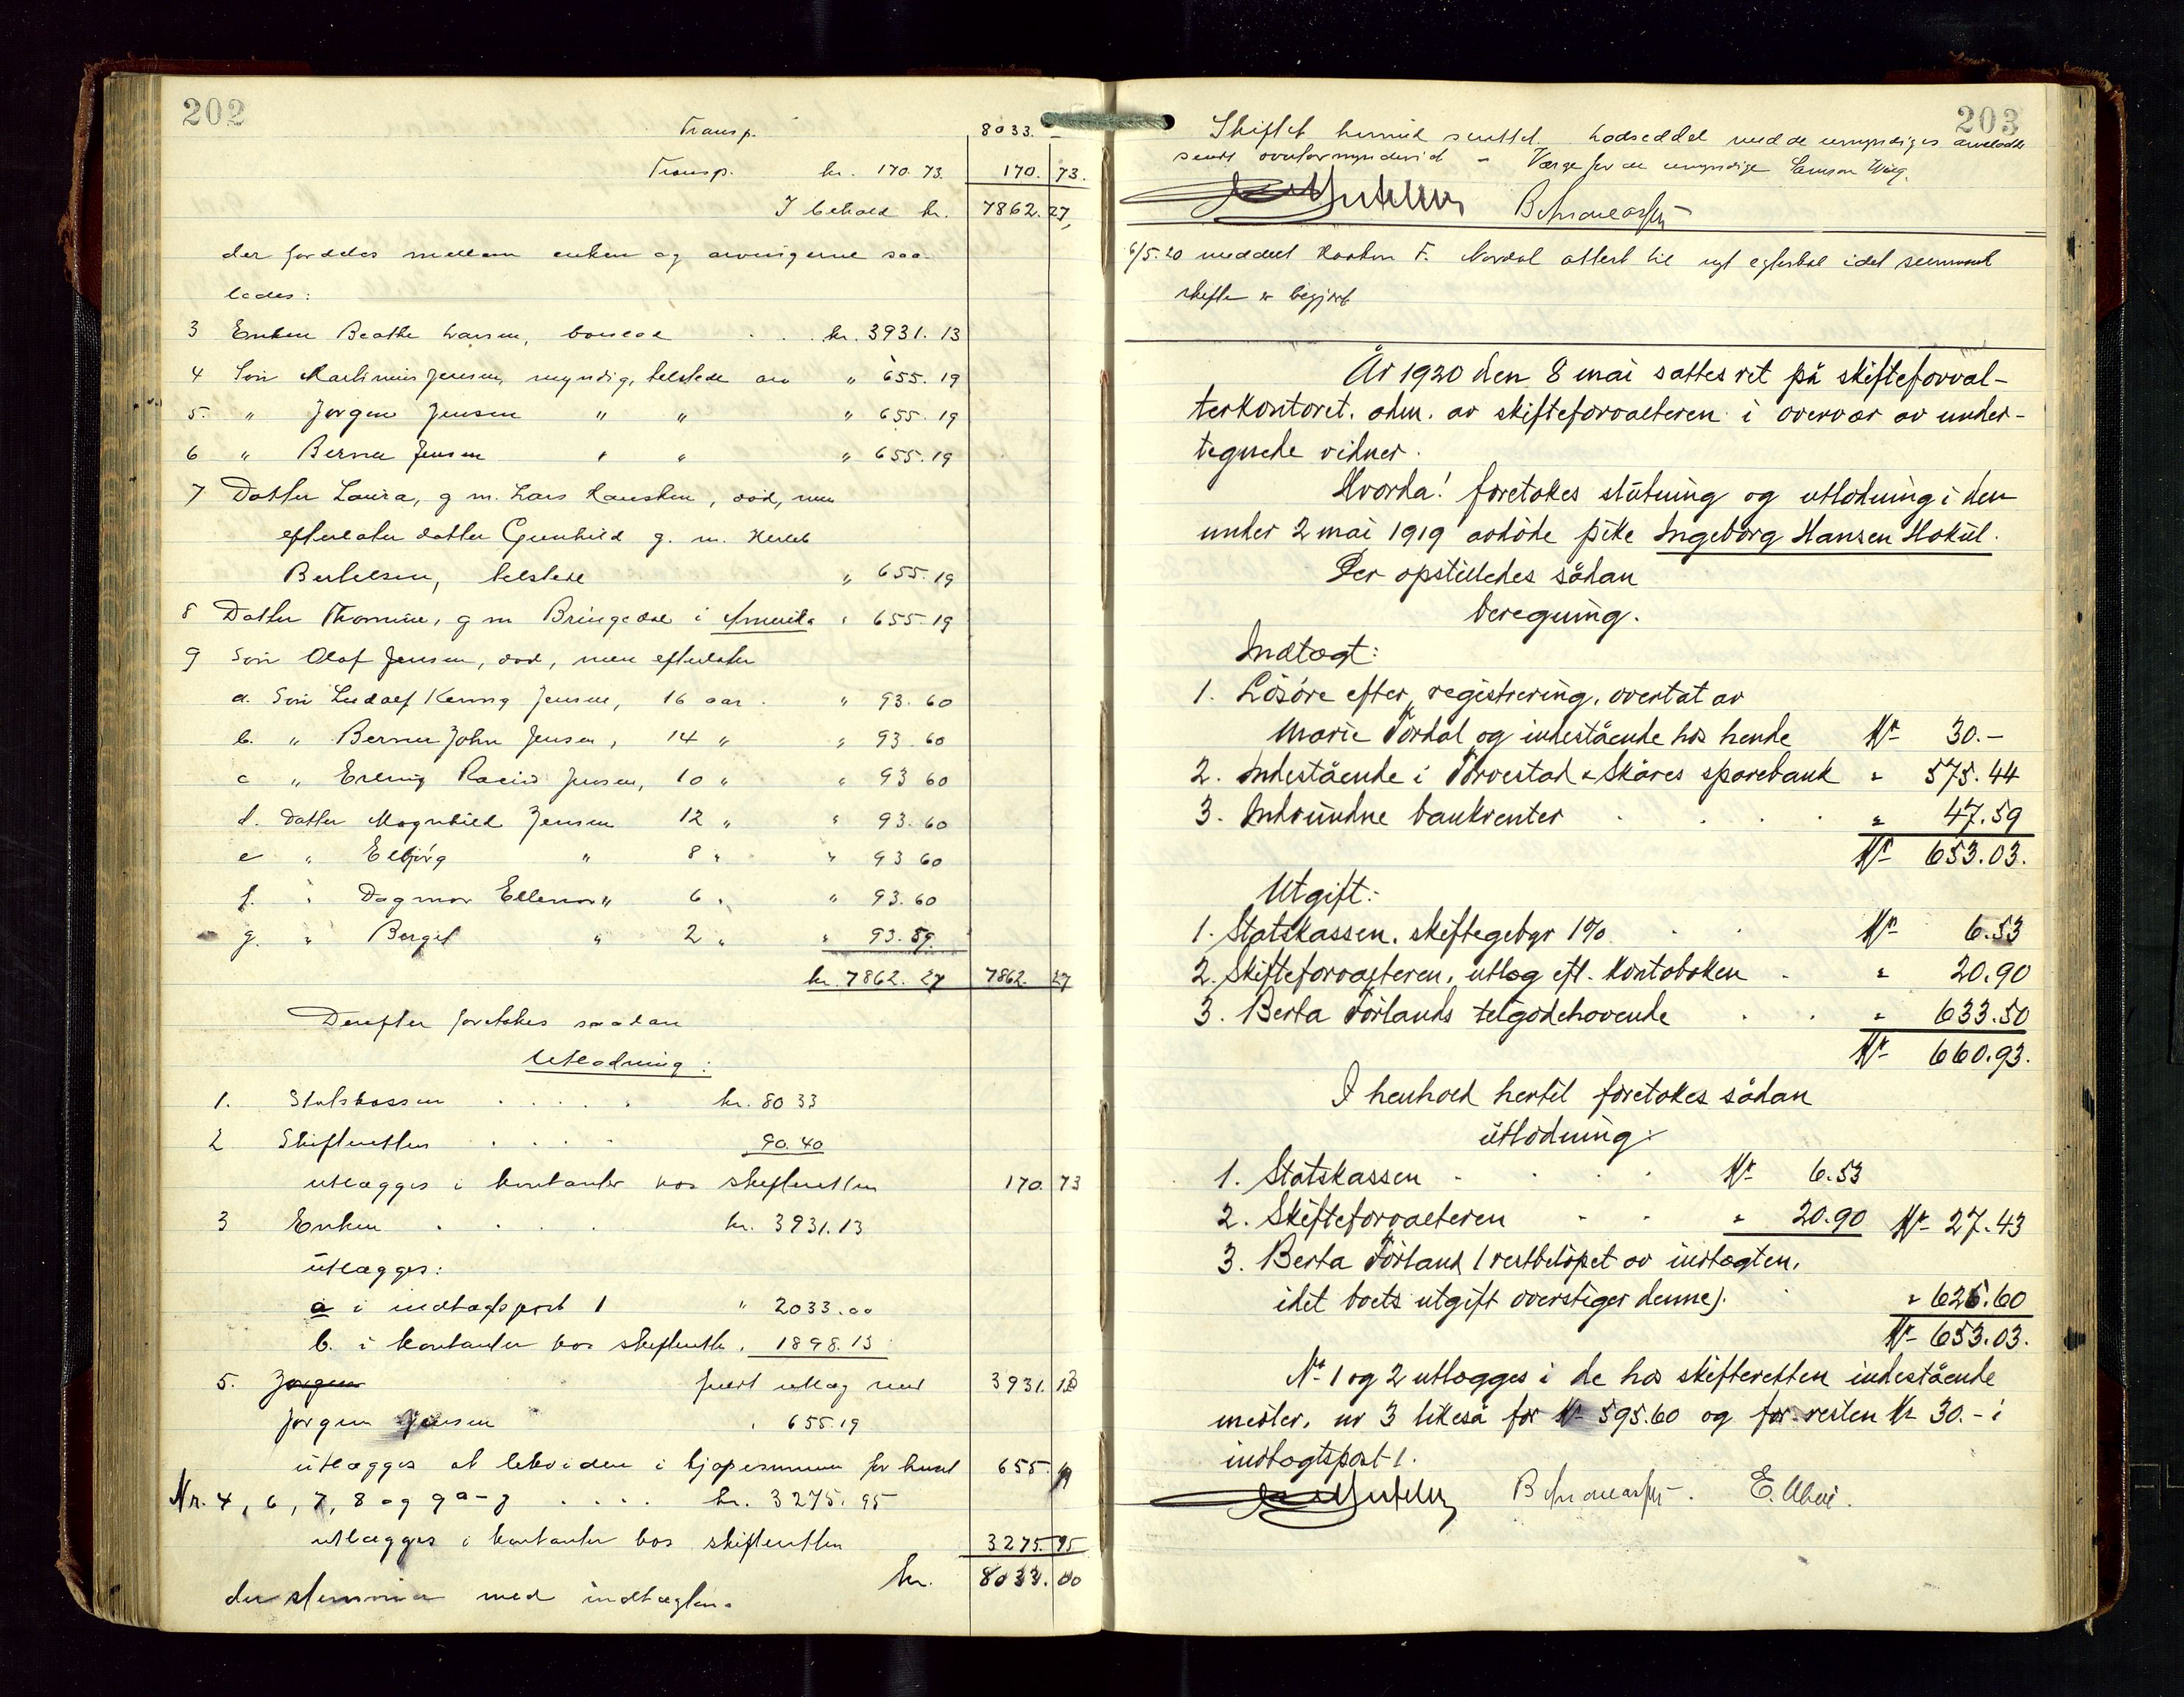 202
Transp. 8033. –
Transp. kr. 170.73. 170. 73.
I behold kr. 7862. 27
der fordeles mellem enken og arvingerne saa-
ledes:
3 Enken Beathe Larsen, boslod . . . kr. 3931.13
4 Søn Martinius Jensen, myndig, tilstede arv " 655.19
5. " Jørgen Jensen " " " 655.19
6 " Berner Jensen " " " 655.19
7 Datter Laura, g m. Lars , død, men
efterlater datter Gunhild g. m.
Bertelsen, tilstede " 655.19
8 Datter Thomine, g m Bringedal i Amerika " 655.19
9 Søn Olaf Jensen, død, men efterlater
a. Søn Ludolf Jensen, 16 aar . " 93.60
b. " Berner John Jensen, 14 " " 93.60
c " Erling Jensen, 10 " " 93 60
d. Datter Magnhild Jensen 12 " " 93.60
e " Elbjørg " 8 " " 93 60
f. " Dagmar Ellenor " 6 " " 93.60
g. " Bergit " 2 " " 93.59
kr. 7862. 27 7862. 27
Derefter foretokes saadan
Utlodning:
1. Statskassen . . . . kr. 80 33
2 Skifteretten . . . . 90.40
utlægges i kontanter hos skifteretten 170. 73
3 Enken . . . . kr. 3931.13
utlægges:
a i indtægtspost 1 " 2033.00
b. i kontanter hos skifterett. 1898.13
5. Jørgen fuldt utlæg med 3931. 13
Jørgen Jensen " 655.19
utlægges at likvidere i kjøpesummen for huset 655. 19
Nr. 4, 6, 7, 8 og 9 a-g . . . . kr. 3275.95
utlægges i kontanter hos skifteretten 3275. 95
kr. 8033. 00
der stemmer med indtægten.
203
Skiftet hermed sluttet. Lodseddel med de umyndiges arvelodder
sendt overformynderiet – Værge for de umyndige
6/5.20 meddelt Haakon F. attest til nyt egteskap idet
skifte er begjært
År 1920 den 8 mai sattes ret på skifteforval-
terkontoret. adm. av skifteforvalteren i overvær av under-
tegnede vidner.
Hvorda! foretokes slutning og utlodning i den
under 2 mai 1919 avdøde pike Ingeborg Hansen Hokül.
Der opstilledes sådan
beregning.
Indtægt:
1. Løsøre efter registrering. overtat av
Marie Førdal og indestående hos hende Kr 30.–
2. Indestående i Torvestad & Skåres sparebank " 575.44
3. Indvundne bankrenter . . . . " 47.59
Kr 653.03.
Utgift:
1. Statskassen. skiftegebyr 1% . . Kr 6.53
2. Skifteforvalteren, utlæg eft. kontoboken . " 20.90
3. Berta Førlands tilgodehavende . . " 633.50
Kr 660.93.
I henhold hertil foretokes sådan
utlodning:
1. Statskassen . . . . Kr 6.53
2. Skifteforvalteren . . " 20.90 Kr 27.43
3. Berta Førland (restbeløpet av indtægten,
idet boets utgift overstiger denne). . " 625.60
Kr 653.03.
Nr 1 og 2 utlægges i de hos skifteretten indestående
midler, nr 3 likeså for Kr 595.60 og for resten Kr 30.– i
indtægtspost 1.